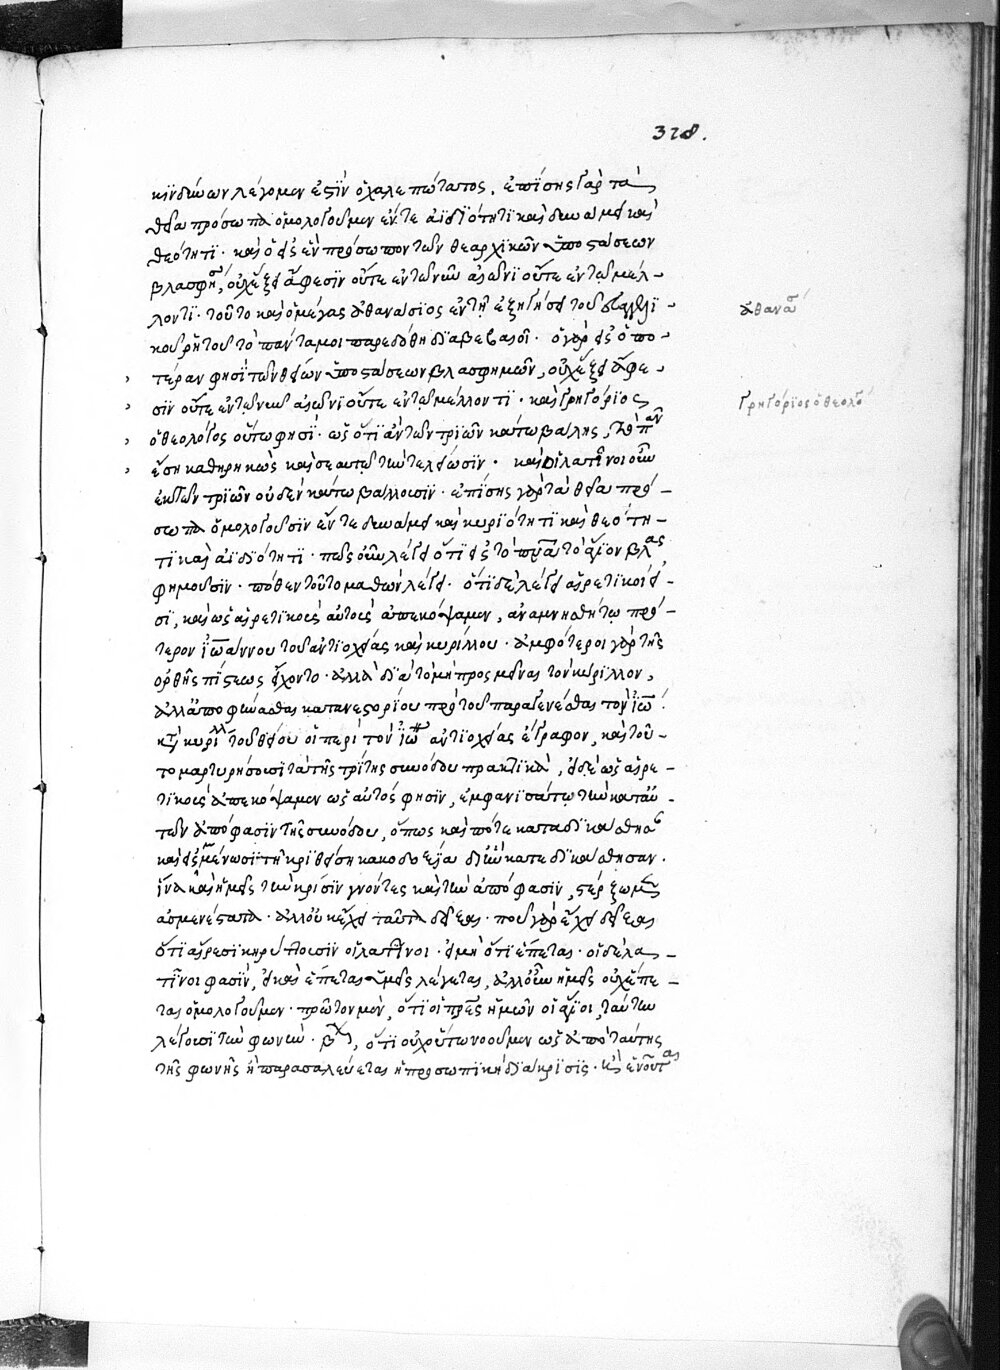 328.
κινδύνων λέγομεν ἐστὶν ὁ χαλεπώτατος. ἐπίσης γὰρ τὰ
θεῖα πρόσωπα ὁμολογοῦμεν ἔν τε ἀϊδιότητι καὶ δυνάμει καὶ
θεότητι· καὶ ὁ εἰς ἓν πρόσωπον τῶν θεαρχικῶν ὑποστάσεων
βλασφη, οὐχ ἕξει ἄφεσιν οὔτε ἐν τῷ νῦν αἰῶνι οὔτε ἐν τῷ μέλ-
λοντι· τοῦτο καὶ ὁ μέγας ἀθανάσιος ἐν τῇ ἐξηγήσει τοῦ εὐαγγελι
κοῦ ῥητοῦ τὸ πάντα μοι παρεδόθη διαβεβαιοῖ· ὁ γὰρ εἰς ὁπο-
τέραν φησὶ τῶν θείων ὑποστάσεων βλασφημῶν, οὐχ ἕξει ἄφε-
σιν οὔτε ἐν τῷ νῦν αἰῶνι οὔτε ἐν τῷ μέλλοντι· καὶ γρηγόριος
ὁ θεολόγος οὕτω φησί· ὡς ὅτι ἂν τῶν τριῶν κάτω βάλῃς, τὸ πᾶν
ἔσῃ καθῃρηκὼς καὶ σεαυτῷ τὴν τελείωσιν· καὶ οἱ λατῖνοι οὖν
ἐκ τῶν τριῶν οὐδὲν κάτω βάλλουσιν· ἐπίσης γὰρ τὰ θεῖα πρό-
σωπα ὁμολογοῦσιν ἔν τε δυνάμει καὶ κυριότητι καὶ θεότη-
τι καὶ ἀϊδιότητι· πῶς οὖν λέγει ὅτι εἰς τὸ πνᾶ τὸ ἅγιον βλας
φημοῦσιν· πόθεν τοῦτο μαθὼν λέγει· ὅτι δὲ λέγει αἱρετικοί εἰ-
σι, καὶ ὡς αἱρετικοὺς αὐτοὺς ἀπεκόψαμεν, ἀναμνησθήτω πρό-
τερον ἰωάννου τοῦ ἀντιοχείας καὶ κυρίλλου· ἀμφότεροι γὰρ τῆς
ὀρθῆς πίστεως εἴχοντο· ἀλλὰ διὰ τὸ μὴ προσμεῖναι τὸν κύριλλον,
ἀλλ' ἀποφῄνασθαι κατὰ νεστορίου πρὸ τοῦ παραγενέσθαι τὸν ἰω
κτ κυριλλ τοῦ θείου οἱ περὶ τὸν ἰω ἀντιοχείας ἔγραφον, καὶ τοῦ-
το μαρτυρήσουσι τὰ τῆς τρίτης συνόδου πρακτικὰ, εἰ δὲ ὡς αἱρε-
τικοὺς ἀπεκόψαμεν ὡς αὐτός φησιν, ἐμφανισάτω τὴν κατ' αὐ-
τῶν ἀπόφασιν τῆς συνόδου, ὅπως καὶ πότε κατεδικάσθησ
ἵνα καὶ ἡμεῖς τὴν κρίσιν γνόντες καὶ τὴν ἀπόφασιν, στέρξωμεν
ἀσμενέστατα· ἀλλ' οὐκ ἔχει ταῦτα δεῖξαι· ποῦ γὰρ ἔχει δεῖξαι
ὅτι αἵρεσι κηρύττουσιν οἱ λατῖνοι· εἰ μὴ ὅτι ἕπεται· οἱ δὲ λα-
τῖνοι φασὶν, εἰ καὶ ἕπεται ὑμεῖς λέγεται, ἀλλ' οὖν ἡμεῖς οὐχ ἕπε-
ται ὁμολογοῦμεν· πρῶτον μὲν, ὅτι οἱ πρες ἡμῶν οἱ ἅγιοι, ταύτην
λέγουσι τὴν φωνὴν· βχ, ὅτι οὐχ οὕτω νοοῦμεν ὡς ἀπὸ ταύτης
τῆς φωνῆς ἢ παρασαλεύεται ἡ προσωπικὴ διάκρισις· κ ἑνοῦται
ἀθανα
γρηγόριος ὁ θεολο